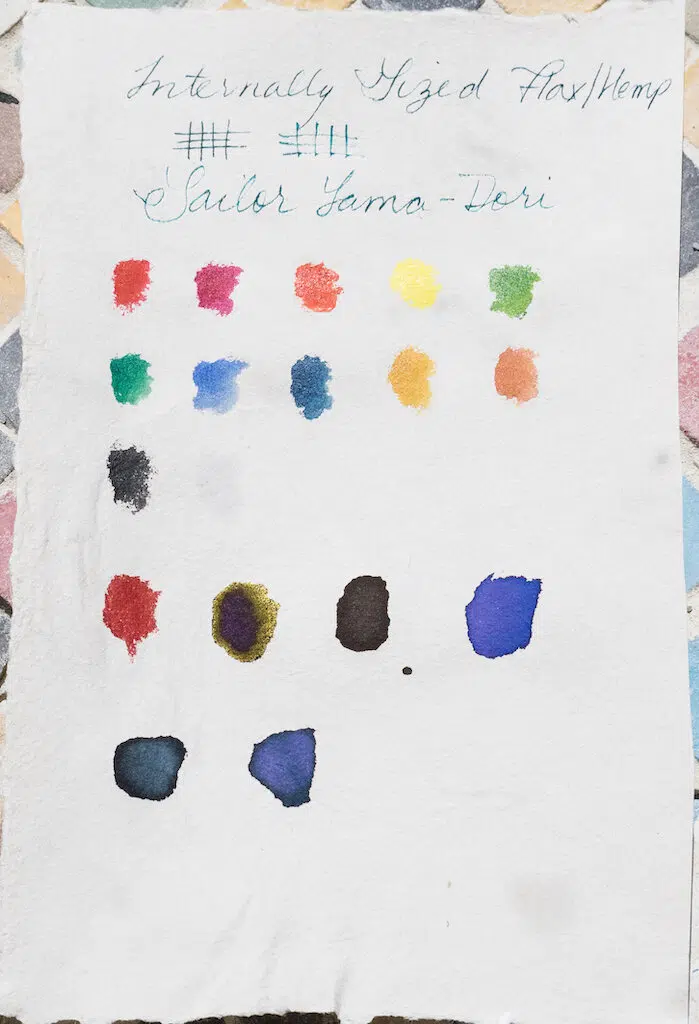 Internally Sized Flax/Hemp
Sailor Yama-Dori